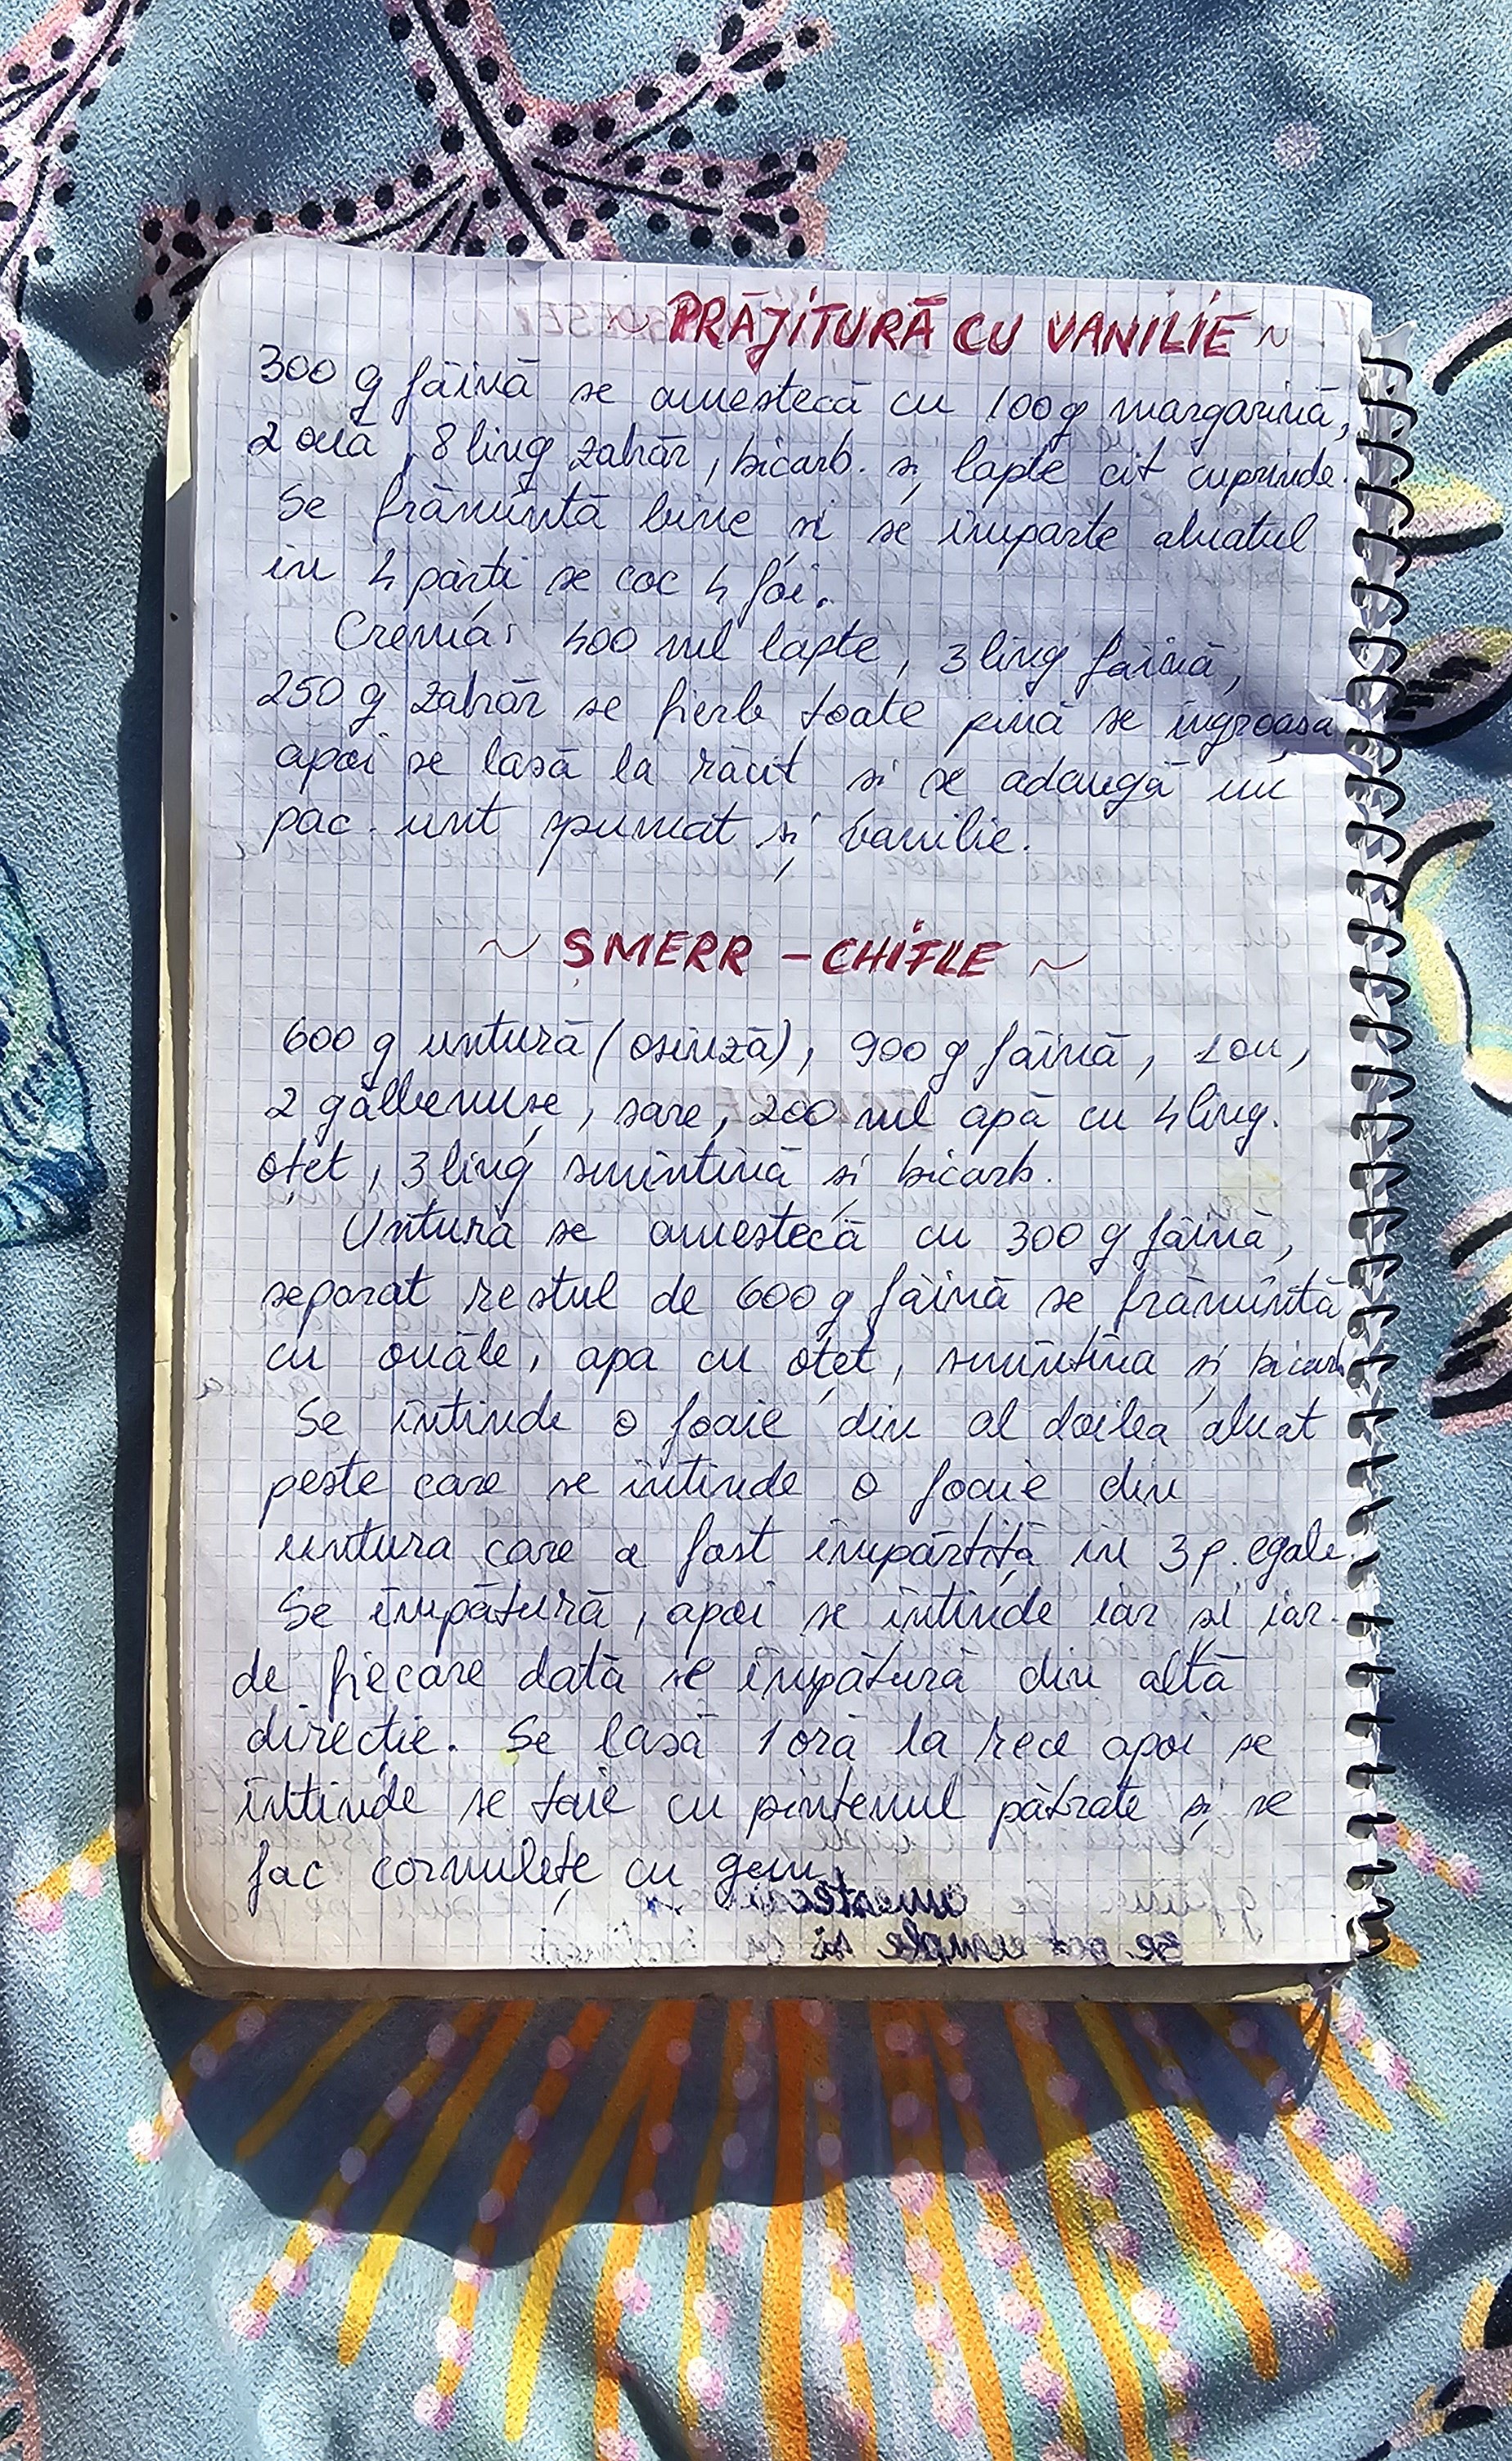 ~ PRĂJITURĂ CU VANILIE ~
300 g făină se amestecă cu 100 g margarină,
2 ouă, 8 ling zahăr, bicarb. și lapte cît cuprinde.
Se frămîntă bine și se împarte aluatul
in 4 părți se coc 4 foi.
Cremă: 400 ml lapte, 3 ling făină,
250 g zahăr se fierb toate pînă se îngroașă
apoi se lasă la răcit și se adaugă un
pac. unt spumat și vanilie.
~ ȘMERR - CHIFLE ~
600 g untură (osînză), 900 g făină, 1 ou,
2 gălbenușe, sare, 200 ml apă cu 4 ling.
oțet, 3 ling smîntînă și bicarb.
Untura se amestecă cu 300 g făină,
separat restul de 600 g făină se frămîntă
cu ouăle, apa cu oțet, smîntîna și bicarb
Se întinde o foaie din al doilea aluat
peste care se intinde o foaie din
untura care a fost împărțită in 3 p. egale.
Se împătură, apoi se intinde iar și iar.
de fiecare dată se împătură din altă
direcție. Se lasă 1 oră la rece apoi se
întinde se taie cu pintenul pătrate și se
fac cornulețe cu gem.